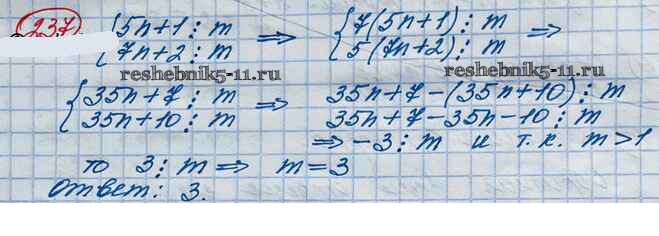 237 { 5n+1 ⋮ m ⇒ { 7(5n+1) ⋮ m ⇒
7n+2 ⋮ m 5(7n+2) ⋮ m
reshebnik5-11.ru reshebnik5-11.ru
{ 35n+7 ⋮ m ⇒ 35n+7-(35n+10) ⋮ m
35n+10 ⋮ m 35n+7-35n-10 ⋮ m
⇒ -3 ⋮ m и т.к. m>1
то 3 ⋮ m ⇒ m=3
Ответ: 3.